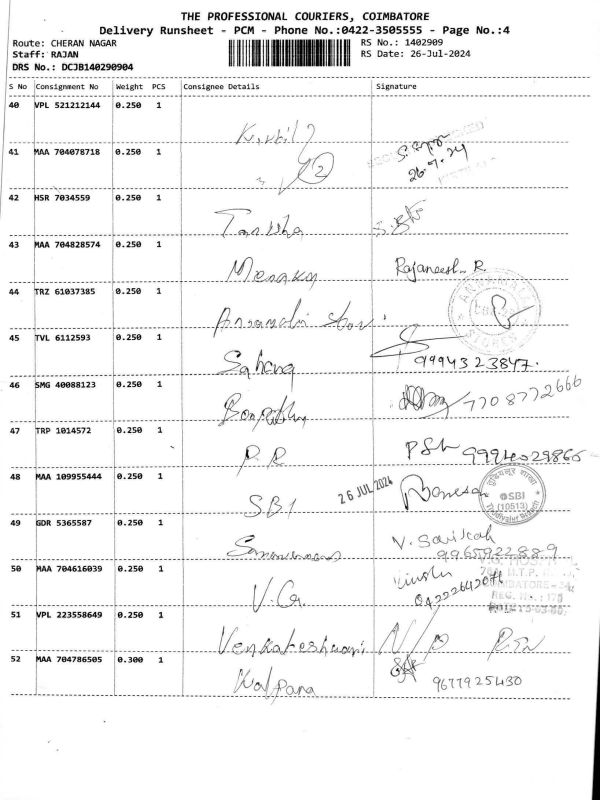 THE PROFESSIONAL COURIERS, COIMBATORE
Delivery Runsheet - PCM - Phone No.:0422-3505555 - Page No.:4
Route: CHERAN NAGAR
RS No.: 1402909
Staff: RAJAN
RS Date: 26-Jul-2024
DRS No.: DCJB140290904
S No Consignment No Weight PCS Consignee Details Signature
40 VPL 521212144 0.250 1
41 MAA 704078718 0.250 1
2
26.7.24
42 HSR 7034559 0.250 1
43 MAA 704828574 0.250 1
Menaka
Rajaneesh. R.
44 TRZ 61037385 0.250 1
45 TVL 6112593 0.250 1
Sahana
9994323847.
46 SMG 40088123 0.250 1
7708772666
47 TRP 1014572 0.250 1
P.R
9994029866
48 MAA 109955444 0.250 1
SBI
26 JUL 2024
SBI
(10513)
49 GDR 5365587 0.250 1
9965922889
50 MAA 704616039 0.250 1
V.G.
51 VPL 223558649 0.250 1
Venkateshwari
52 MAA 704786505 0.300 1
Kalpana
9677925430